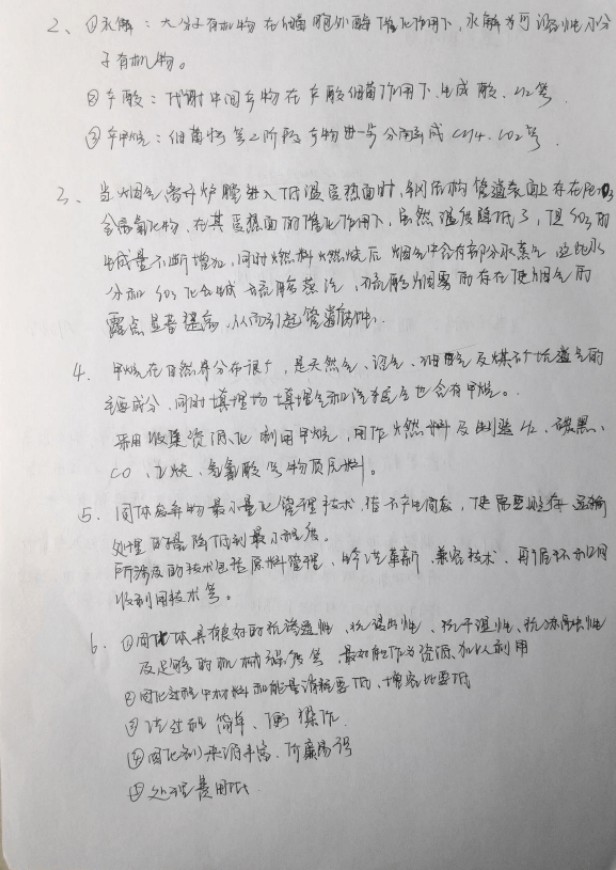 2、①水解：大分子有机物在细菌胞外酶催化作用下，水解为可溶性小分
子有机物。
②产酸：代谢中间产物在产酸细菌作用下生成酸、H2等.
③产甲烷：细菌将第2阶段产物进一步分解成CH4、CO2等.
3、当烟气离开炉膛进入低温受热面时，钢结构管道表面上存在Fe2O3
金属氧化物，在其受热面的催化作用下，虽然温度降低了，但SO3的
生成量不断增加，同时燃料燃烧后烟气中含有部分水蒸气 这些水
分和SO3化合生成硫酸蒸汽，硫酸烟雾的存在使烟气的
露点显著提高，从而引起管道腐蚀.
4. 甲烷在自然界分布很广，是天然气、沼气、油田气及煤矿坑道气的
主要成分，同时填埋场填埋气和汽车尾气也含有甲烷。
采用收集资源化利用甲烷，用作燃料及制造H2、碳黑、
CO、乙炔、氢氰酸等物质原料。
5、固体废弃物最小量化管理技术，指不产生固废，使需要贮存运输
处理的量降低到最小程度。
所涉及的技术包括原料管理、生产工艺革新、技术、再循环和回
收利用技术等。
6. ①固化体具有良好的抗渗透性、抗浸出性、抗干湿性、抗冻融性
及足够的机械强度等 最好能作为资源加以利用
②固化过程中材料和能量消耗要低，增容比要低
③过程简单、便操作.
④固化剂来源丰富、价廉易得
⑤处理费用低.